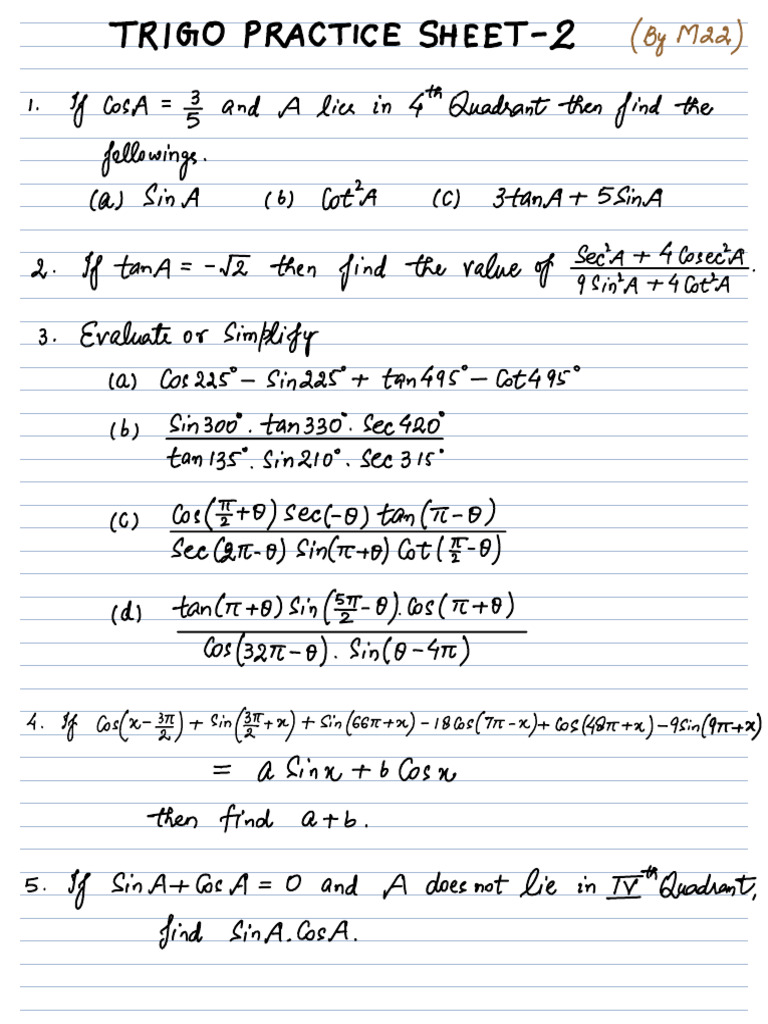 TRIGO PRACTICE SHEET-2 (By M22)
1. If CosA = 3/5 and A lies in 4th Quadrant then find the
followings.
(a) Sin A (b) Cot²A (c) 3tanA + 5SinA
2. If tanA = -√2 then find the value of (Sec²A + 4 Cosec²A)/(9 Sin²A + 4 Cot²A).
3. Evaluate or Simplify
(a) Cos225° - Sin225° + tan495° - Cot495°
(b) (Sin300°. tan330°. Sec420°)/(tan135°. Sin210°. Sec315°)
(c) (Cos(π/2+θ) Sec(-θ) tan(π-θ))/(Sec(2π-θ) Sin(π+θ) Cot(π/2-θ))
(d) (tan(π+θ) Sin(5π/2-θ). Cos(π+θ))/(Cos(32π-θ). Sin(θ-4π))
4. If Cos(x-3π/2) + Sin(3π/2+x) + Sin(66π+x) - 18Cos(7π-x) + Cos(48π+x) - 9Sin(9π+x)
= a Sinx + b Cosx
then find a+b.
5. If SinA + CosA = 0 and A does not lie in IVth Quadrant,
find SinA.CosA.